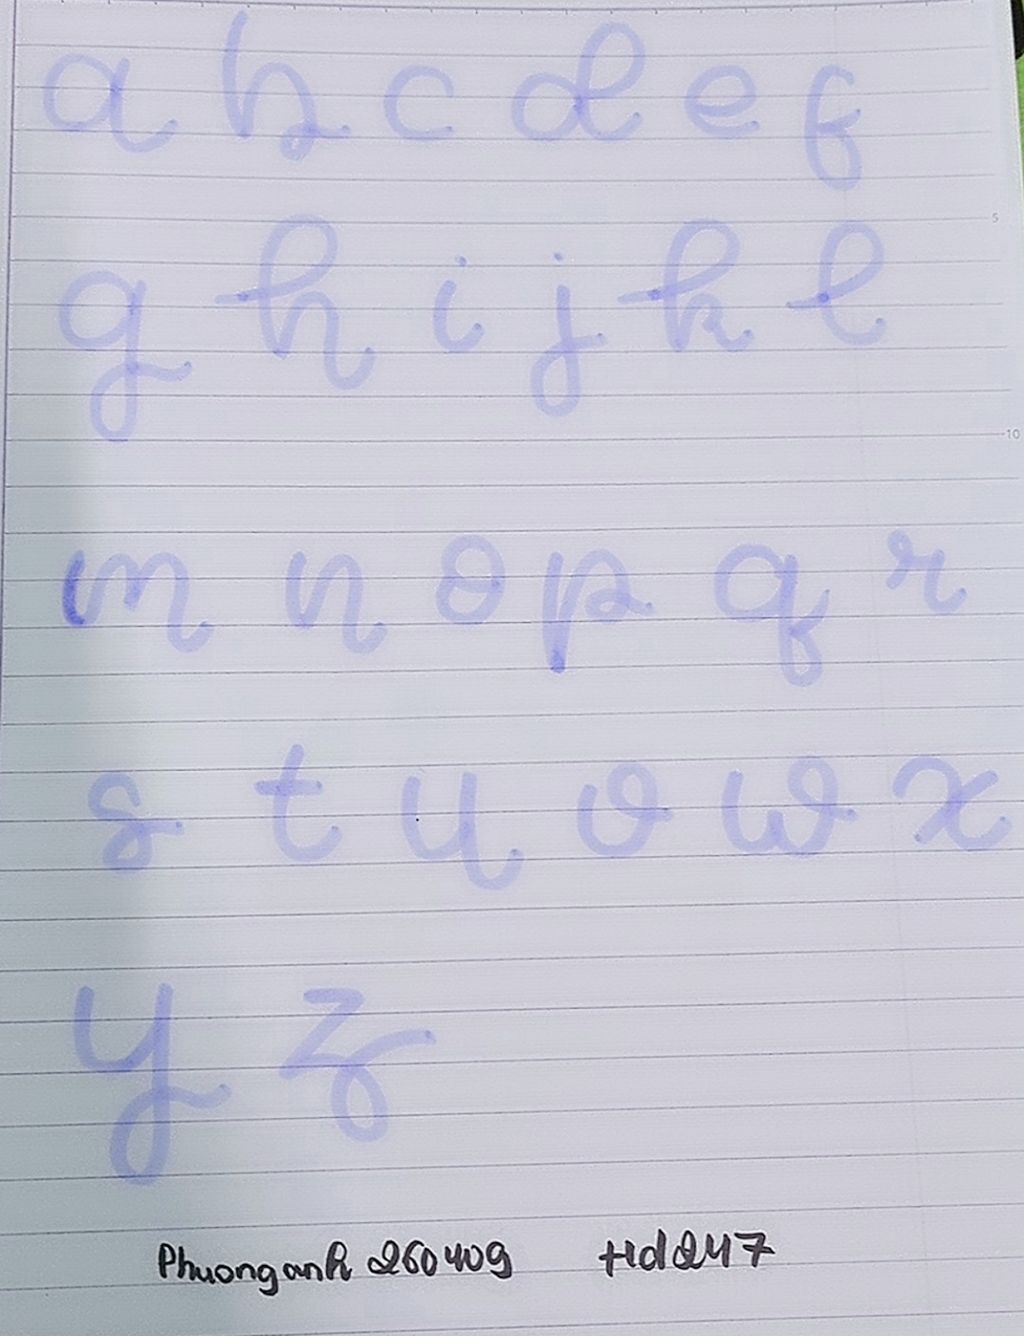 a b c d e f
5
g h i j k l
10
m n o p q r
s t u v w x
y z
Phuonganh 260409 Hd247